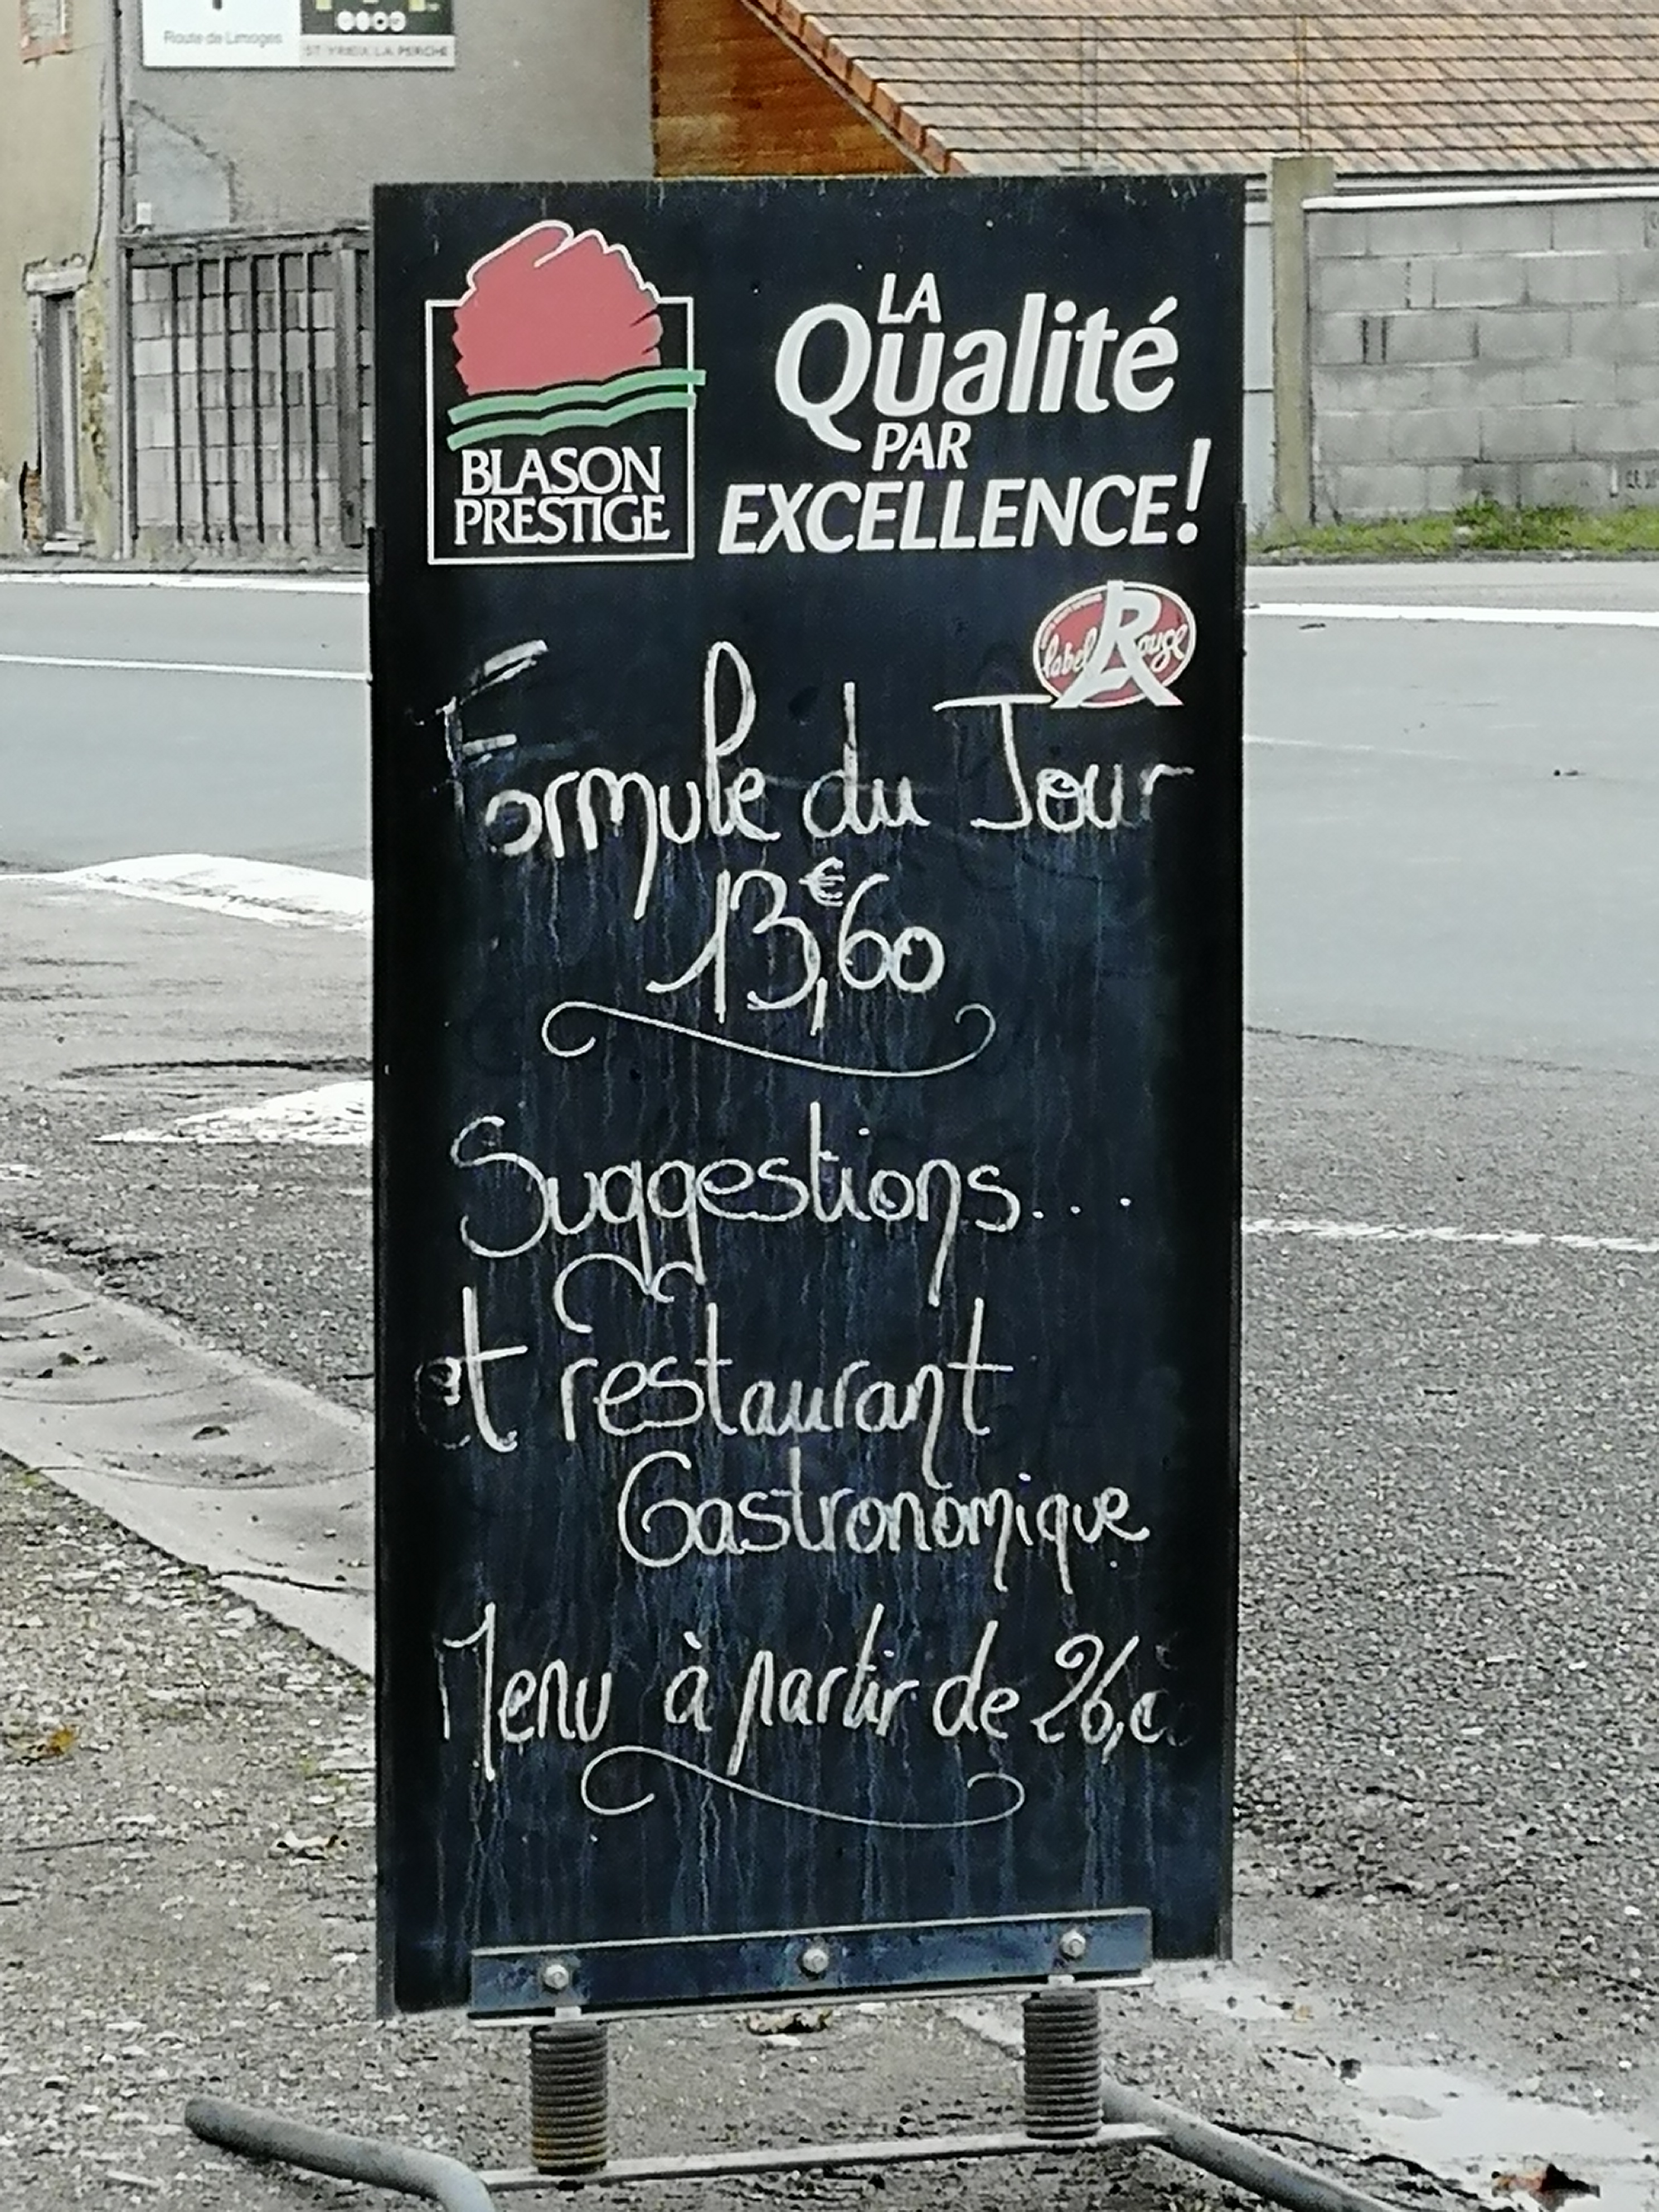 Route de Limoges
ST YRIEIX LA PERCHE
LA
Qualité
PAR
EXCELLENCE!
BLASON
PRESTIGE
label Rouge
Formule du Jour
13,€60
Suggestions...
et restaurant
Gastronomique
Menu à partir de 26,